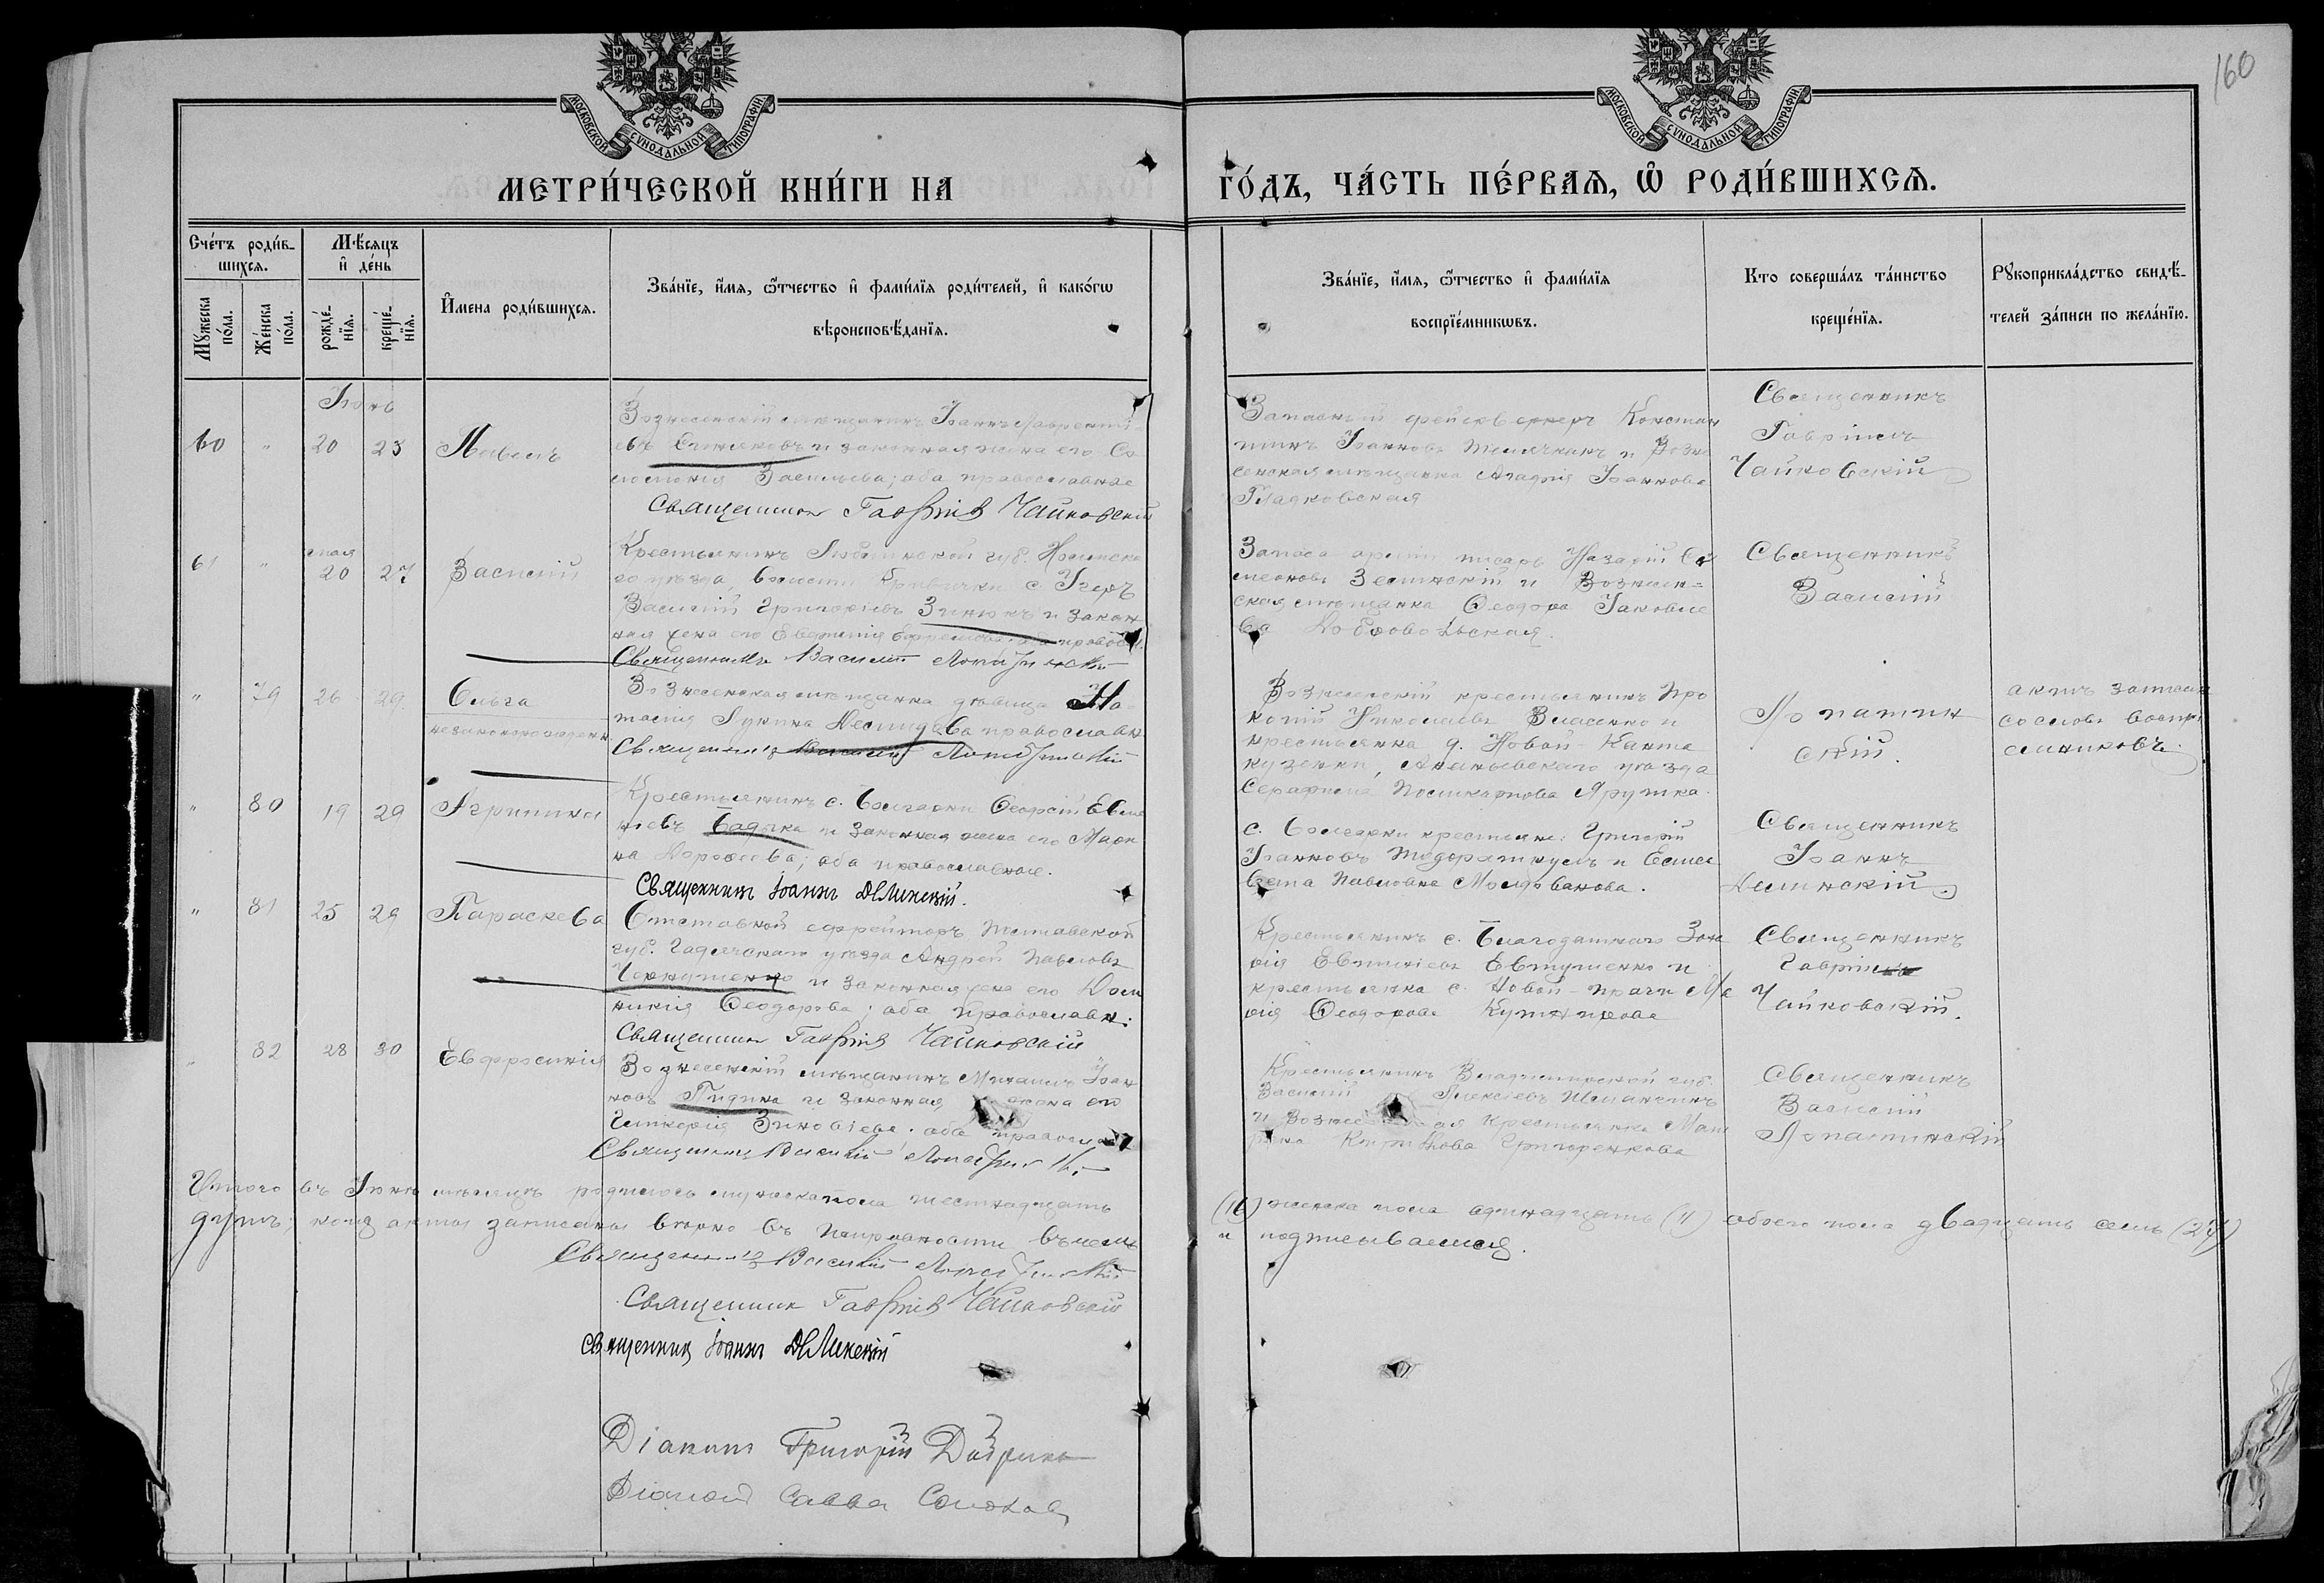 160
МОСКОВСКОЙ СУНОДАЛЬНОЙ ТИПОГРАФІИ
МОСКОВСКОЙ СУНОДАЛЬНОЙ ТИПОГРАФІИ
МЕТРИ́ЧЕСКОЙ КНИ́ГИ НА
ГО́ДЪ, ЧА́СТЬ ПЕ́РВАѦ, Ѡ҆ РОДИ́ВШИХСѦ.
Сче́тъ роди́в-
шихсѧ.
Мѣ́сѧцъ
и҆ де́нь
Мꙋ́жеска
по́ла.
Же́нска
по́ла.
рожде́-
нїѧ.
креще́-
нїѧ.
И҆мена роди́вшихсѧ.
Зва́нїе, и҆́мѧ, ѻ҆́тчество и҆ фами́лїѧ роди́телей, и҆ како́гѡ
вѣроисповѣ́данїѧ.
Зва́нїе, и҆́мѧ, ѻ҆́тчество и҆ фами́лїѧ
воспрїе́мникѡвъ.
Кто соверша́лъ та́инство
креще́нїѧ.
Рꙋкоприкла́дство свидѣ́-
телей за́писи по жела́нїю.
Іюнь
60 " 20 23 Павелъ
Вознесенскій мѣщанинъ Іоаннъ
евъ и законная жена его Со
ломонія Васильева; оба православные
Священникъ Гавріилъ Чайковскій
Запасный фейерверкеръ Констан
тинъ Іоанновъ и Возне
сенская мѣщанка Агафія Іоаннова
Гладковская
Священникъ
Гавріилъ
Чайковскій
мая
61 " 20 27 Василій
Крестьянинъ Люблинской губ.
го уѣзда, волости Кривички с.
Василій Григоріевъ Зинюкъ и закон
ная жена его Евфимія Ефремова; оба правосл.
Священникъ Василій Лопатинскій
Запаса арміи писарь Назарій Си
меоновъ Зелинскій и Вознесен=
ская мѣщанка Ѳеодора Іаковле
ва Добровольская.
Священникъ
Василій
" 79 26 29 Ольга
незаконнорожденн.
Вознесенская мѣщанка дѣвица На-
талія Лукина православн.
Священникъ Василій Лопатинскій
Вознесенскій крестьянинъ Про
копій Николаевъ Власенко и
крестьянка д. Новой-Канта
кузенки, Ананьевскаго уѣзда
Серафима Поликарпова Ярутка.
Лопатин
скій.
актъ записан
со словъ воспрі
емниковъ.
" 80 19 29 Агрипина
Крестьянинъ с. Болгарки Георгій Евѳи
міевъ Бадика и законная жена его Мари
на Дороѳеева; оба православные.
Священникъ Іоаннъ Делинскій.
с. Болгарки крестьяне: Григорій
Іоанновъ и Елиса
вета Павлова Молдованова.
Священникъ
Іоаннъ
Делинскій
" 81 25 29 Параскева
Отставной ефрейторъ Полтавской
губ. Гадячскаго уѣзда Андрей Павловъ
и законная жена его Дом
никія Ѳеодорова; оба православн:
Священникъ Гавріилъ Чайковскій
Крестьянинъ с. Благодатнаго
Евтушенко и
крестьянка с. Новой-Праги Ма
рія Ѳеодорова
Священникъ
Гавріилъ
Чайковскій.
" 82 28 30 Евфросинія
Вознесенскій мѣщанинъ Михаилъ Іоан
новъ Пидика и законная жена его
Гликерія Зиновіева. оба православ
Священникъ Василій Лопатинскій
Крестьянинъ Владимирской губ.
Василій Алексіевъ
и Вознесенская крестьянка Мат
рона Григоренкова
Священникъ
Василій
Лопатинскій
Итого въ Іюнѣ мѣсяцѣ родилось мужеска пола шестнадцать
(16) женска пола одинадцать (11) обоего пола двадцать семь (27)
душъ; коихъ акты записаны вѣрно въ исправности въ чемъ
и подписываемся.
Священникъ Василій Лопатинскій
Священникъ Гавріилъ Чайковскій
Священникъ Іоаннъ Делинскій
Діаконъ Григорій
Діаконъ Савва